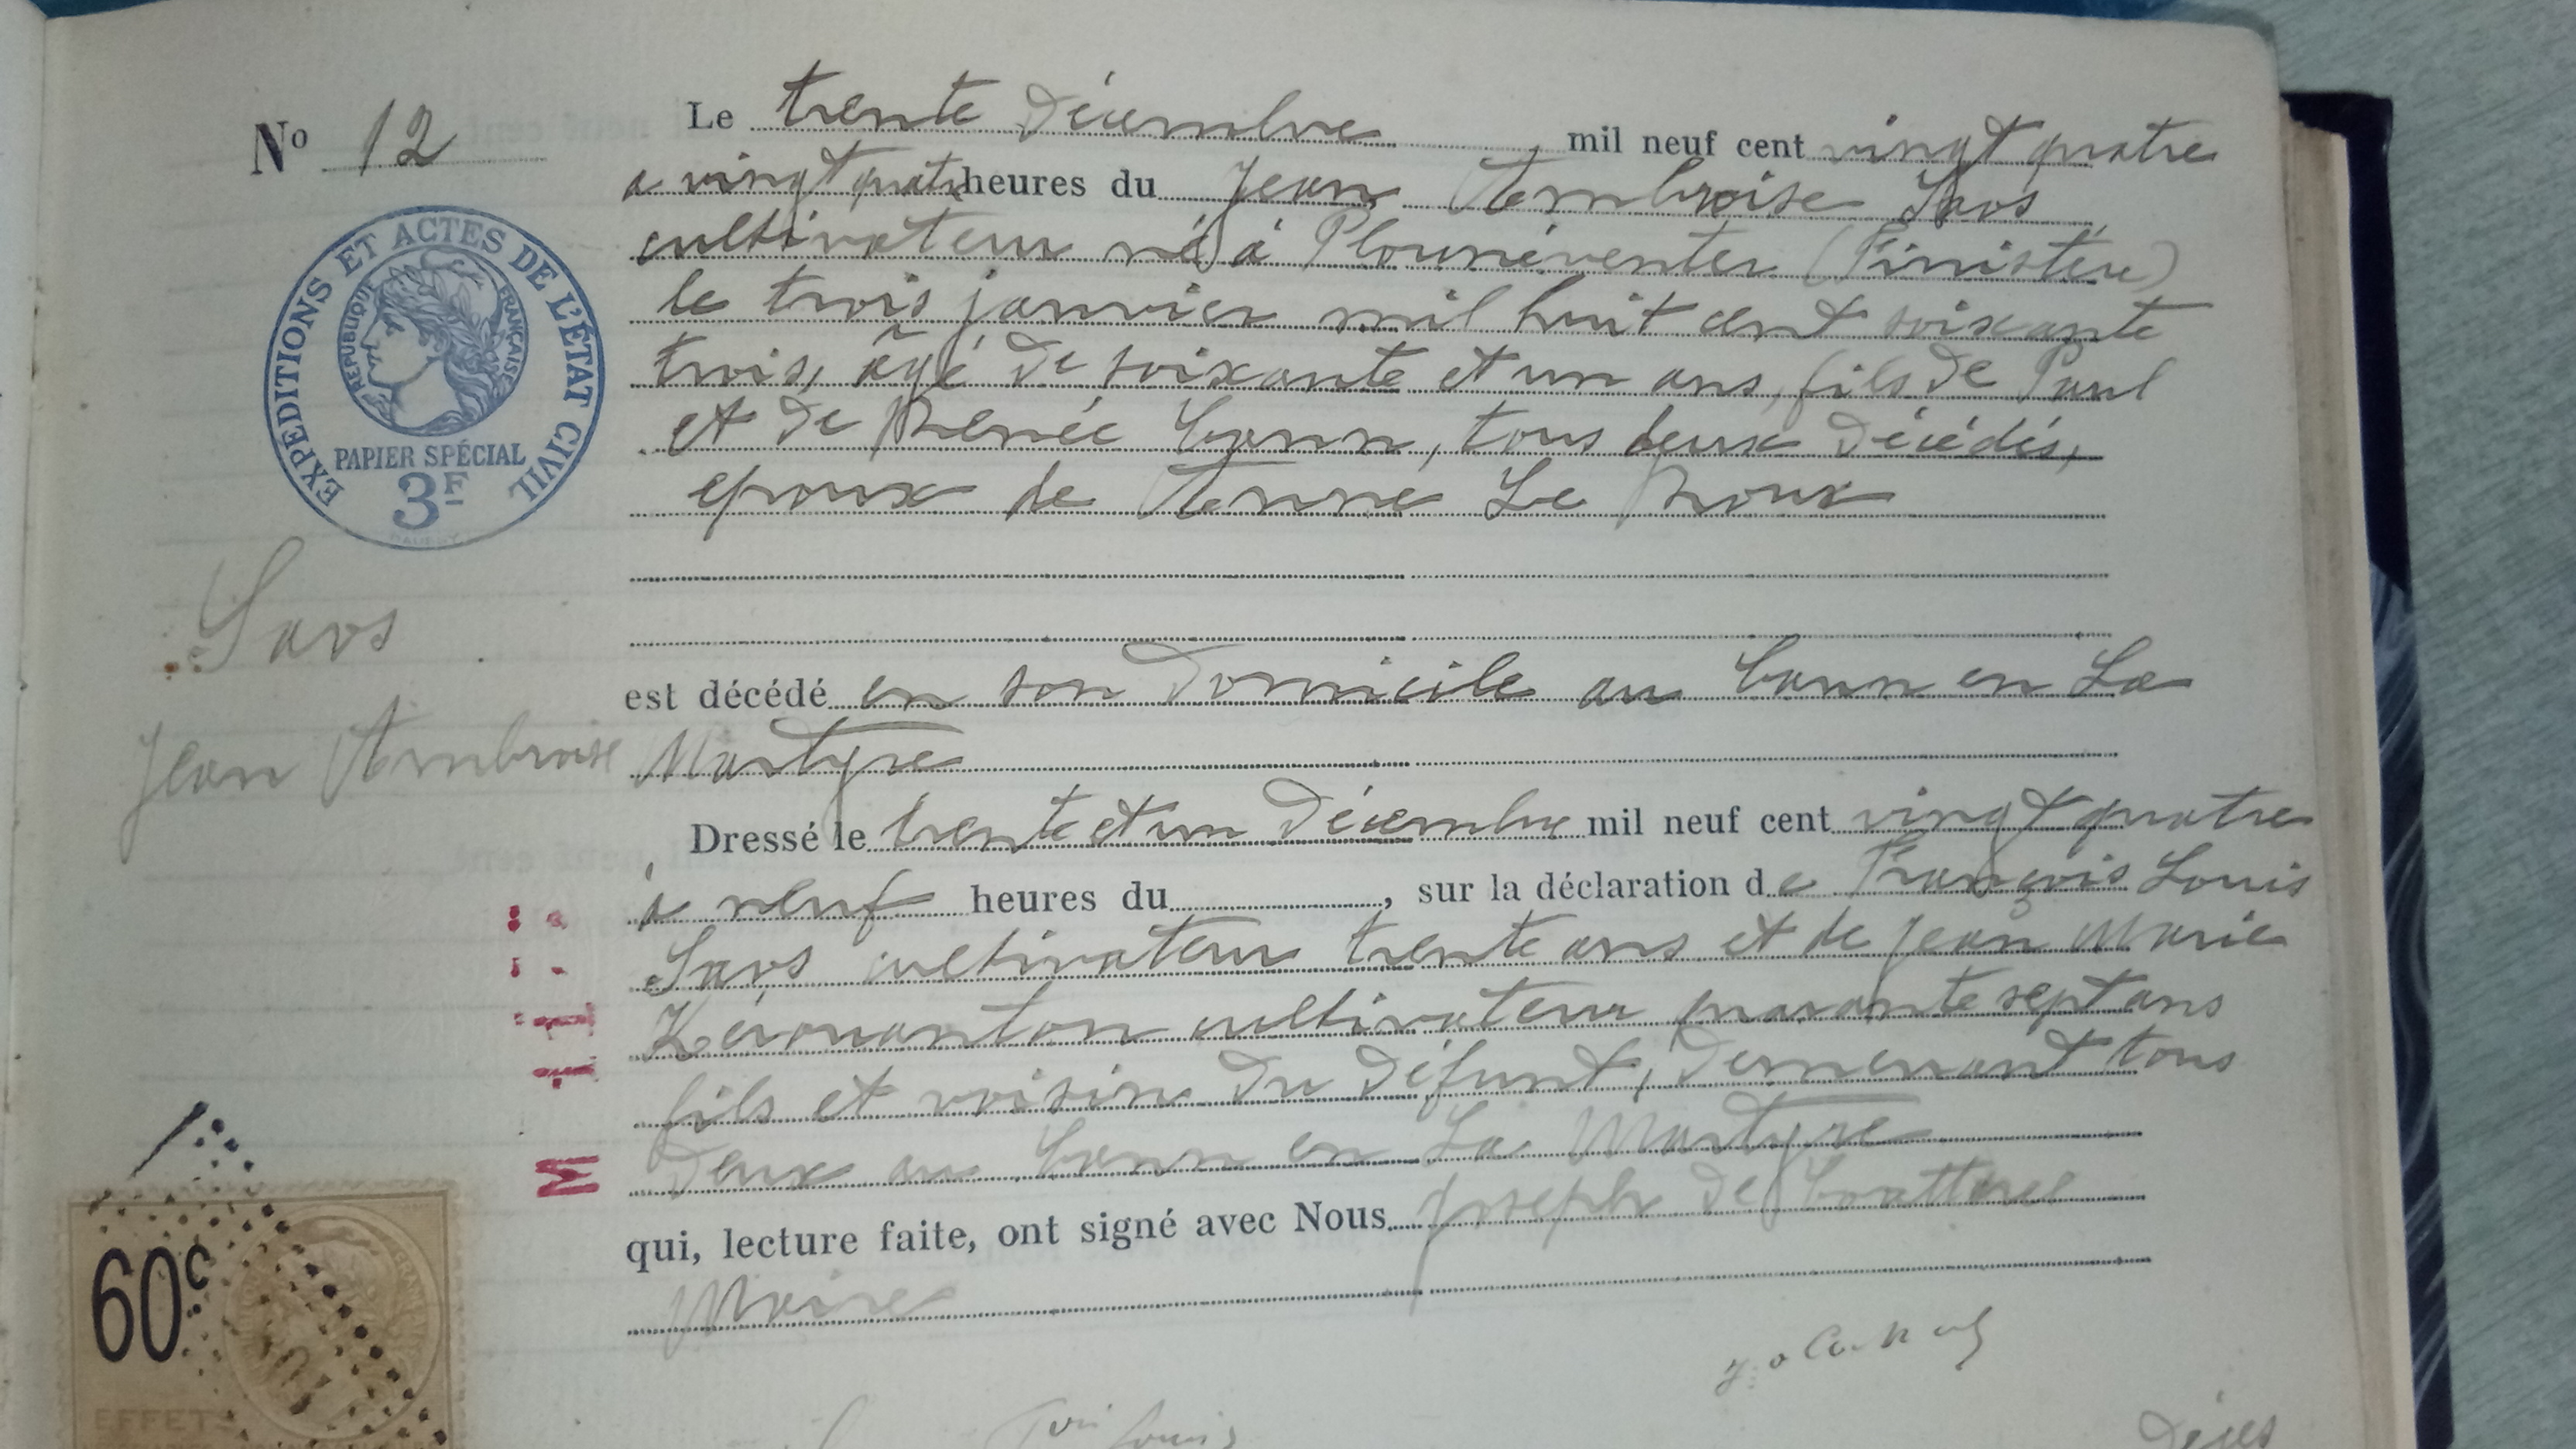 Nº 12
Le trente Décembre mil neuf cent vingt quatre
a vingt quatre heures du Jean Ambroise Saos
cultivateur né à Plounéventer (Finistère)
le trois janvier mil huit cent soixante
trois, âgé de soixante et un ans, fils de Paul
et de Renée, tous deux décédés,
epoux de Anne Le Roux
EXPÉDITIONS ET ACTES DE L'ÉTAT CIVIL
RÉPUBLIQUE FRANÇAISE
PAPIER SPÉCIAL
3F
Saos
Jean Ambroise
est décédé en son domicile au en La
Martyre
Dressé le trente et un Décembre mil neuf cent vingt quatre
à neuf heures du , sur la déclaration de François Louis
Saos cultivateur trente ans et de Jean Marie
Kérouanton cultivateur quarante sept ans
fils et voisin du défunt, demeurant tous
deux au en La Martyre
qui, lecture faite, ont signé avec Nous Joseph de
Maire
60c
EFFET
Décès